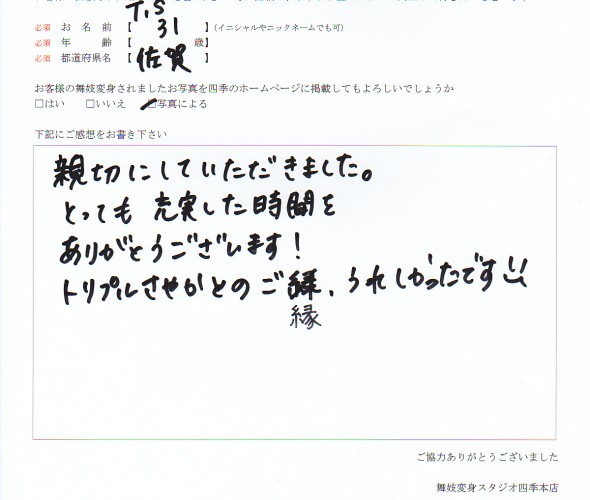 必須 お名前【T.S】(イニシャルやニックネームでも可)
必須 年齢【31歳】
必須 都道府県名【佐賀】
お客様の舞妓変身されましたお写真を四季のホームページに掲載してもよろしいでしょうか
□はい □いいえ ☑写真による
下記にご感想をお書き下さい
親切にしていただきました。
とっても充実した時間を
ありがとうございます!
トリプルさやかとのご縁、うれしかったです
縁
ご協力ありがとうございました
舞妓変身スタジオ四季本店